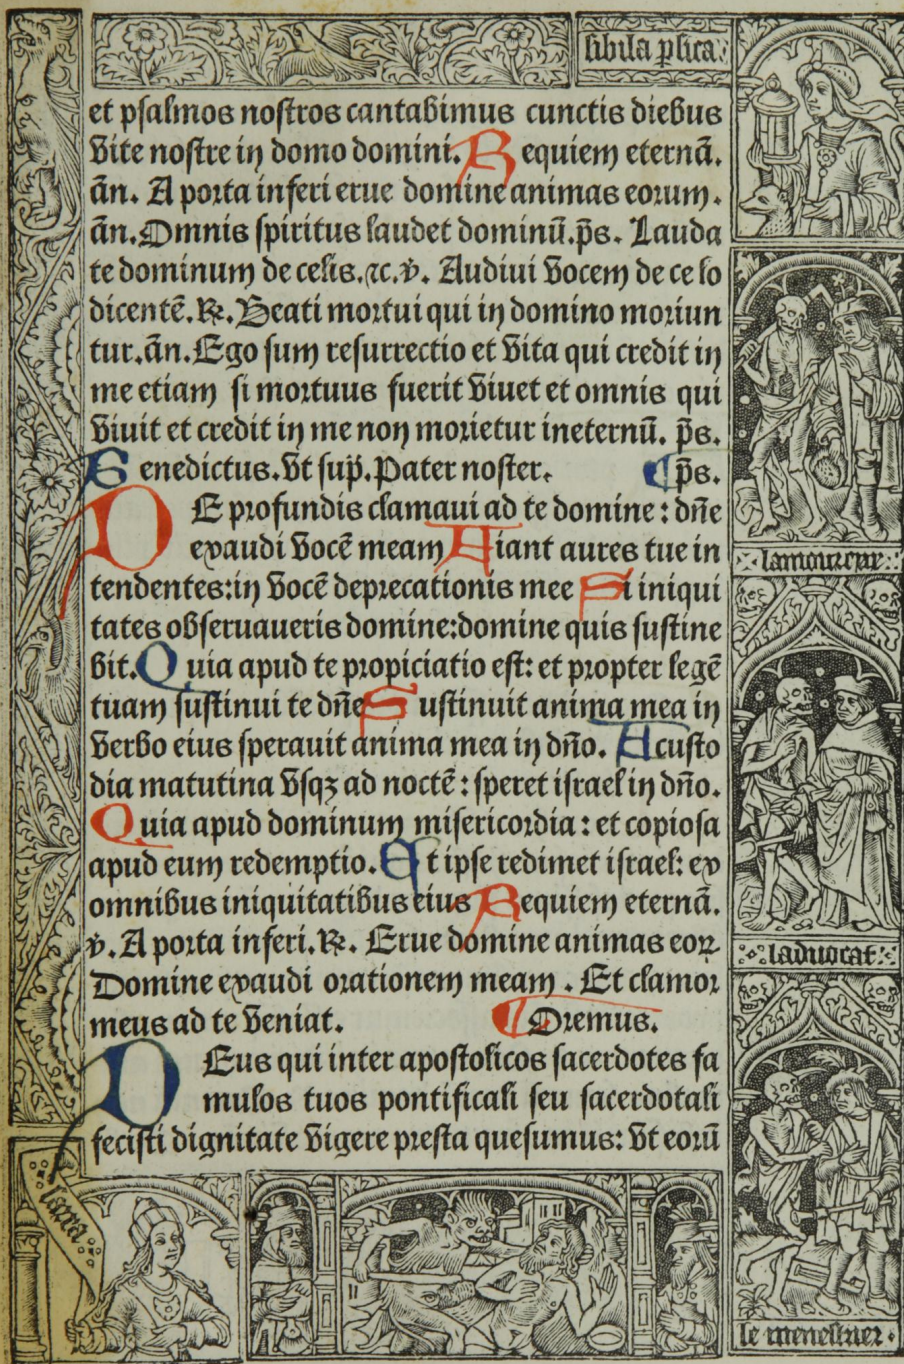 sibila p̱sica
et psalmos nostros cantabimus cunctis diebus
vite nostre in domo domini. Requiem eternā.
ān. A porta inferi erue domine animas eorum.
ān. Omnis spiritus laudet dominū. p̄s. Lauda
te dominum de celis. ⁊c. ℣. Audiui vocem de celo
dicentē. ℟. Beati mortui qui in domino moriun
tur. ān. Ego sum resurrectio et vita qui credit in
me etiam si mortuus fuerit viuet et omnis qui
viuit et credit in me non morietur ineternū. p̄s.
Benedictus. vt sup̄. Pater noster. p̄s.
DE profundis clamaui ad te domine: dn̄e
exaudi vocē meam Fiant aures tue in
tendentes: in vocē deprecationis mee Si iniqui
tates obseruaueris domine: domine quis sustine
bit. Quia apud te propiciatio est: et propter legē
tuam sustinui te dn̄e Sustinuit anima mea in
verbo eius sperauit anima mea in dn̄o. A custo
dia matutina vsqꝫ ad noctē: speret israel in dn̄o.
Quia apud dominum misericordia: et copiosa
apud eum redemptio. Et ipse redimet israel: ex
omnibus iniquitatibus eius Requiem eternā.
℣. A porta inferi. ℟. Erue domine animas eoꝝ
Domine exaudi orationem meam. Et clamor
meus ad te veniat. Oremus.
DEus qui inter apostolicos sacerdotes fa
mulos tuos pontificali seu sacerdotali
fecisti dignitate vigere presta quesumus: vt eorū
lamoureux
laduocat
le menestrier